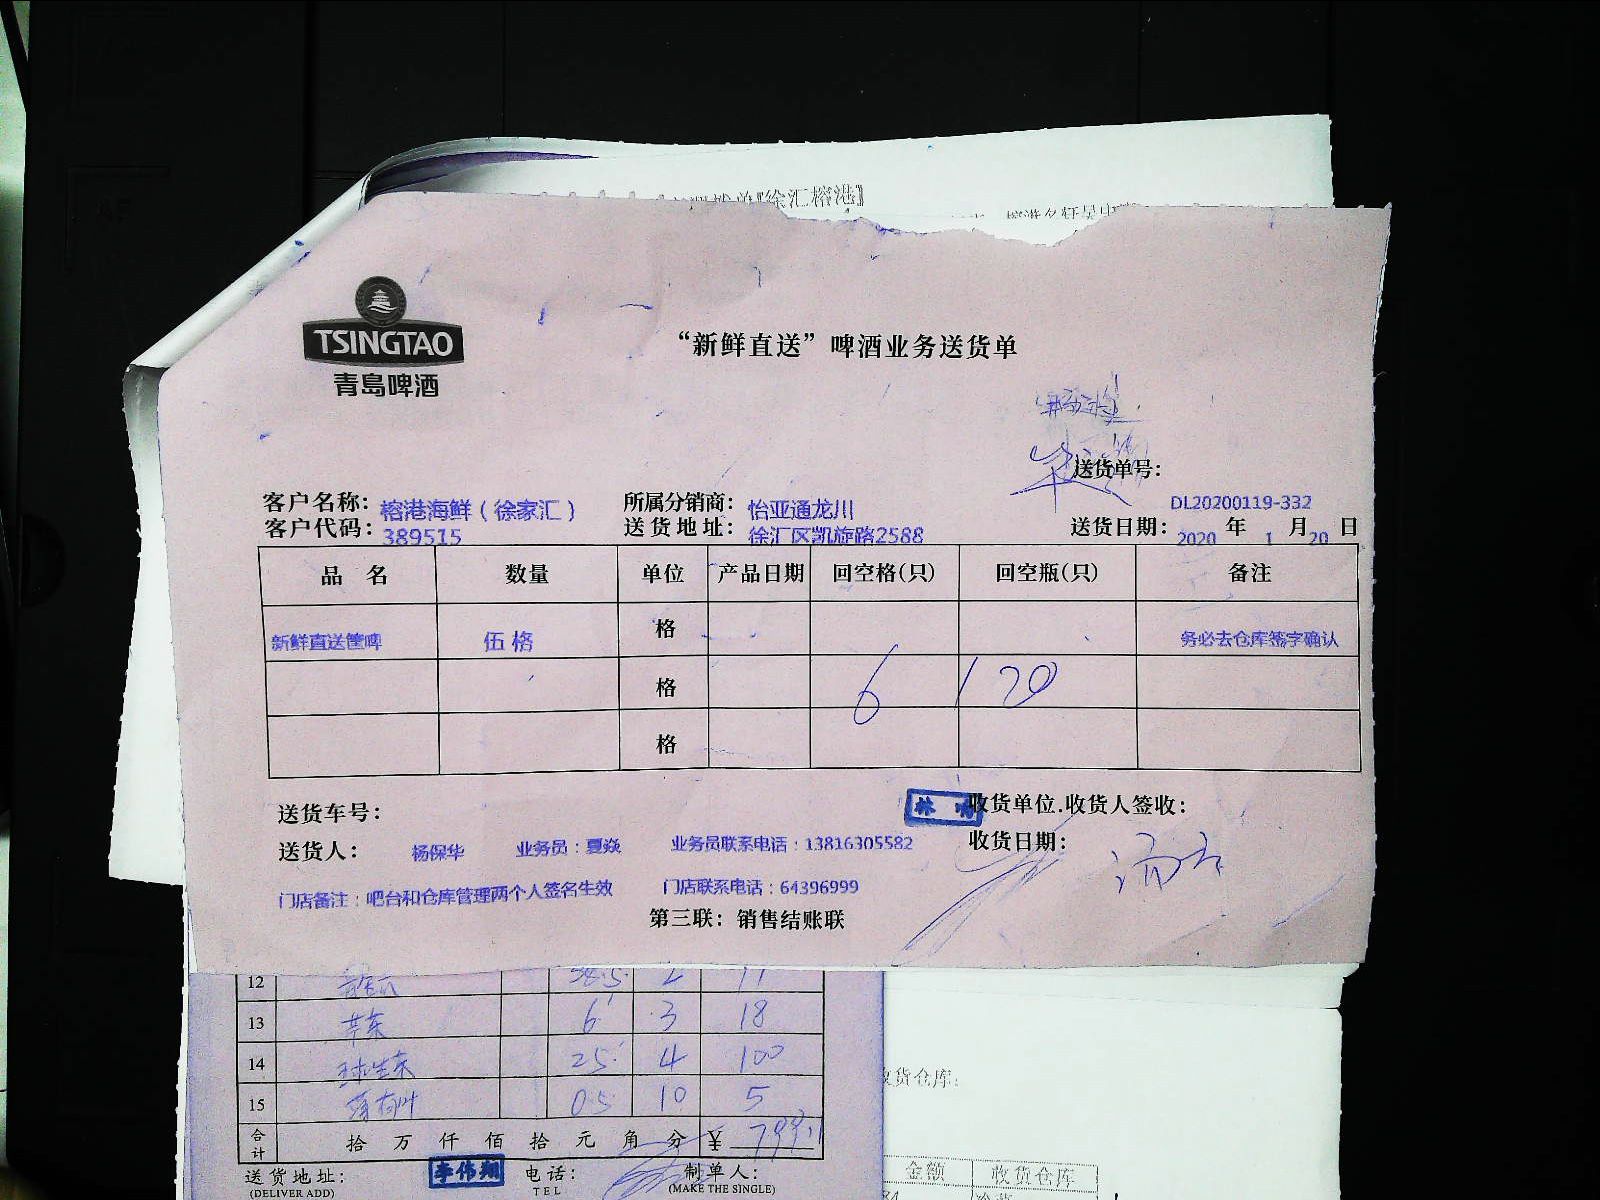 【徐汇榕港】
TSINGTAO
青岛啤酒
“新鲜直送”啤酒业务送货单
送货单号：
DL20200119-332
客户名称：榕港海鲜（徐家汇） 所属分销商：怡亚通龙川
客户代码：389515 送货地址：徐汇区凯旋路2588 送货日期：2020 年 1 月 20 日
品 名 数量 单位 产品日期 回空格(只) 回空瓶(只) 备注
新鲜直送筐啤 伍格 格 务必去仓库签字确认
格 6 120
格
送货车号： 收货单位.收货人签收：
收货日期：
送货人： 杨保华 业务员：夏焱 业务员联系电话：13816305582
门店备注：吧台和仓库管理两个人签名生效 门店联系电话：64396999
第三联：销售结账联
12
13 6 3 18
14 25 4 100
15 薄荷叶 0.5 10 5
合计 拾 万 仟 佰 拾 元 角 分 ¥
送货地址： 李伟翔 电话： 制单人：
(DELIVER ADD) TEL (MAKE THE SINGLE)
收货仓库：
金额 收货仓库